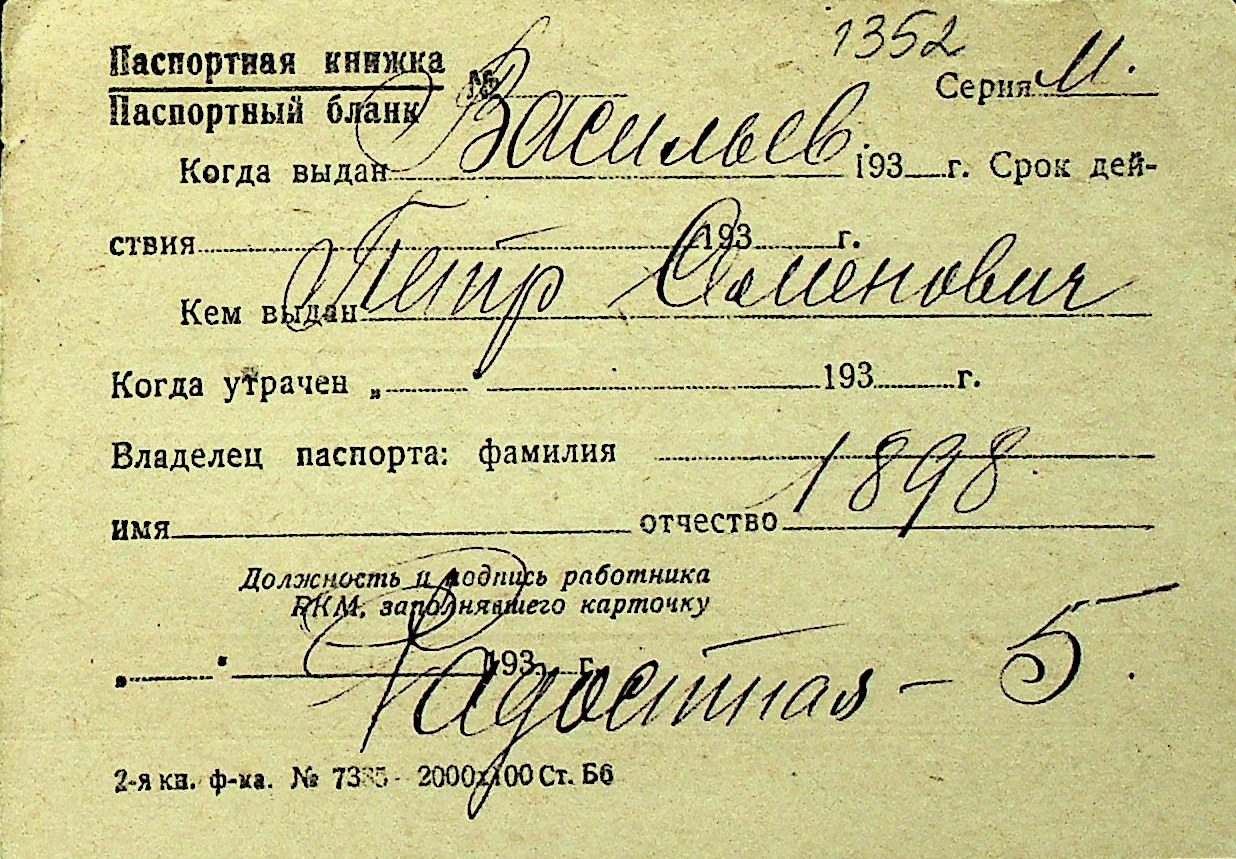 1352
Паспортная книжка № Серия М.
Паспортный бланк
Васильев.
Когда выдан 193 г. Срок дей-
ствия 193 г.
Петр Семенович
Кем выдан
Когда утрачен „ " 193 г.
Владелец паспорта: фамилия
1898.
имя отчество
Должность и подпись работника
РКМ, заполнявшего карточку
„ " 193 г.
Радостная – 5.
2-я кн. ф-ка. № 7335 - 2000х100 Ст. Б6